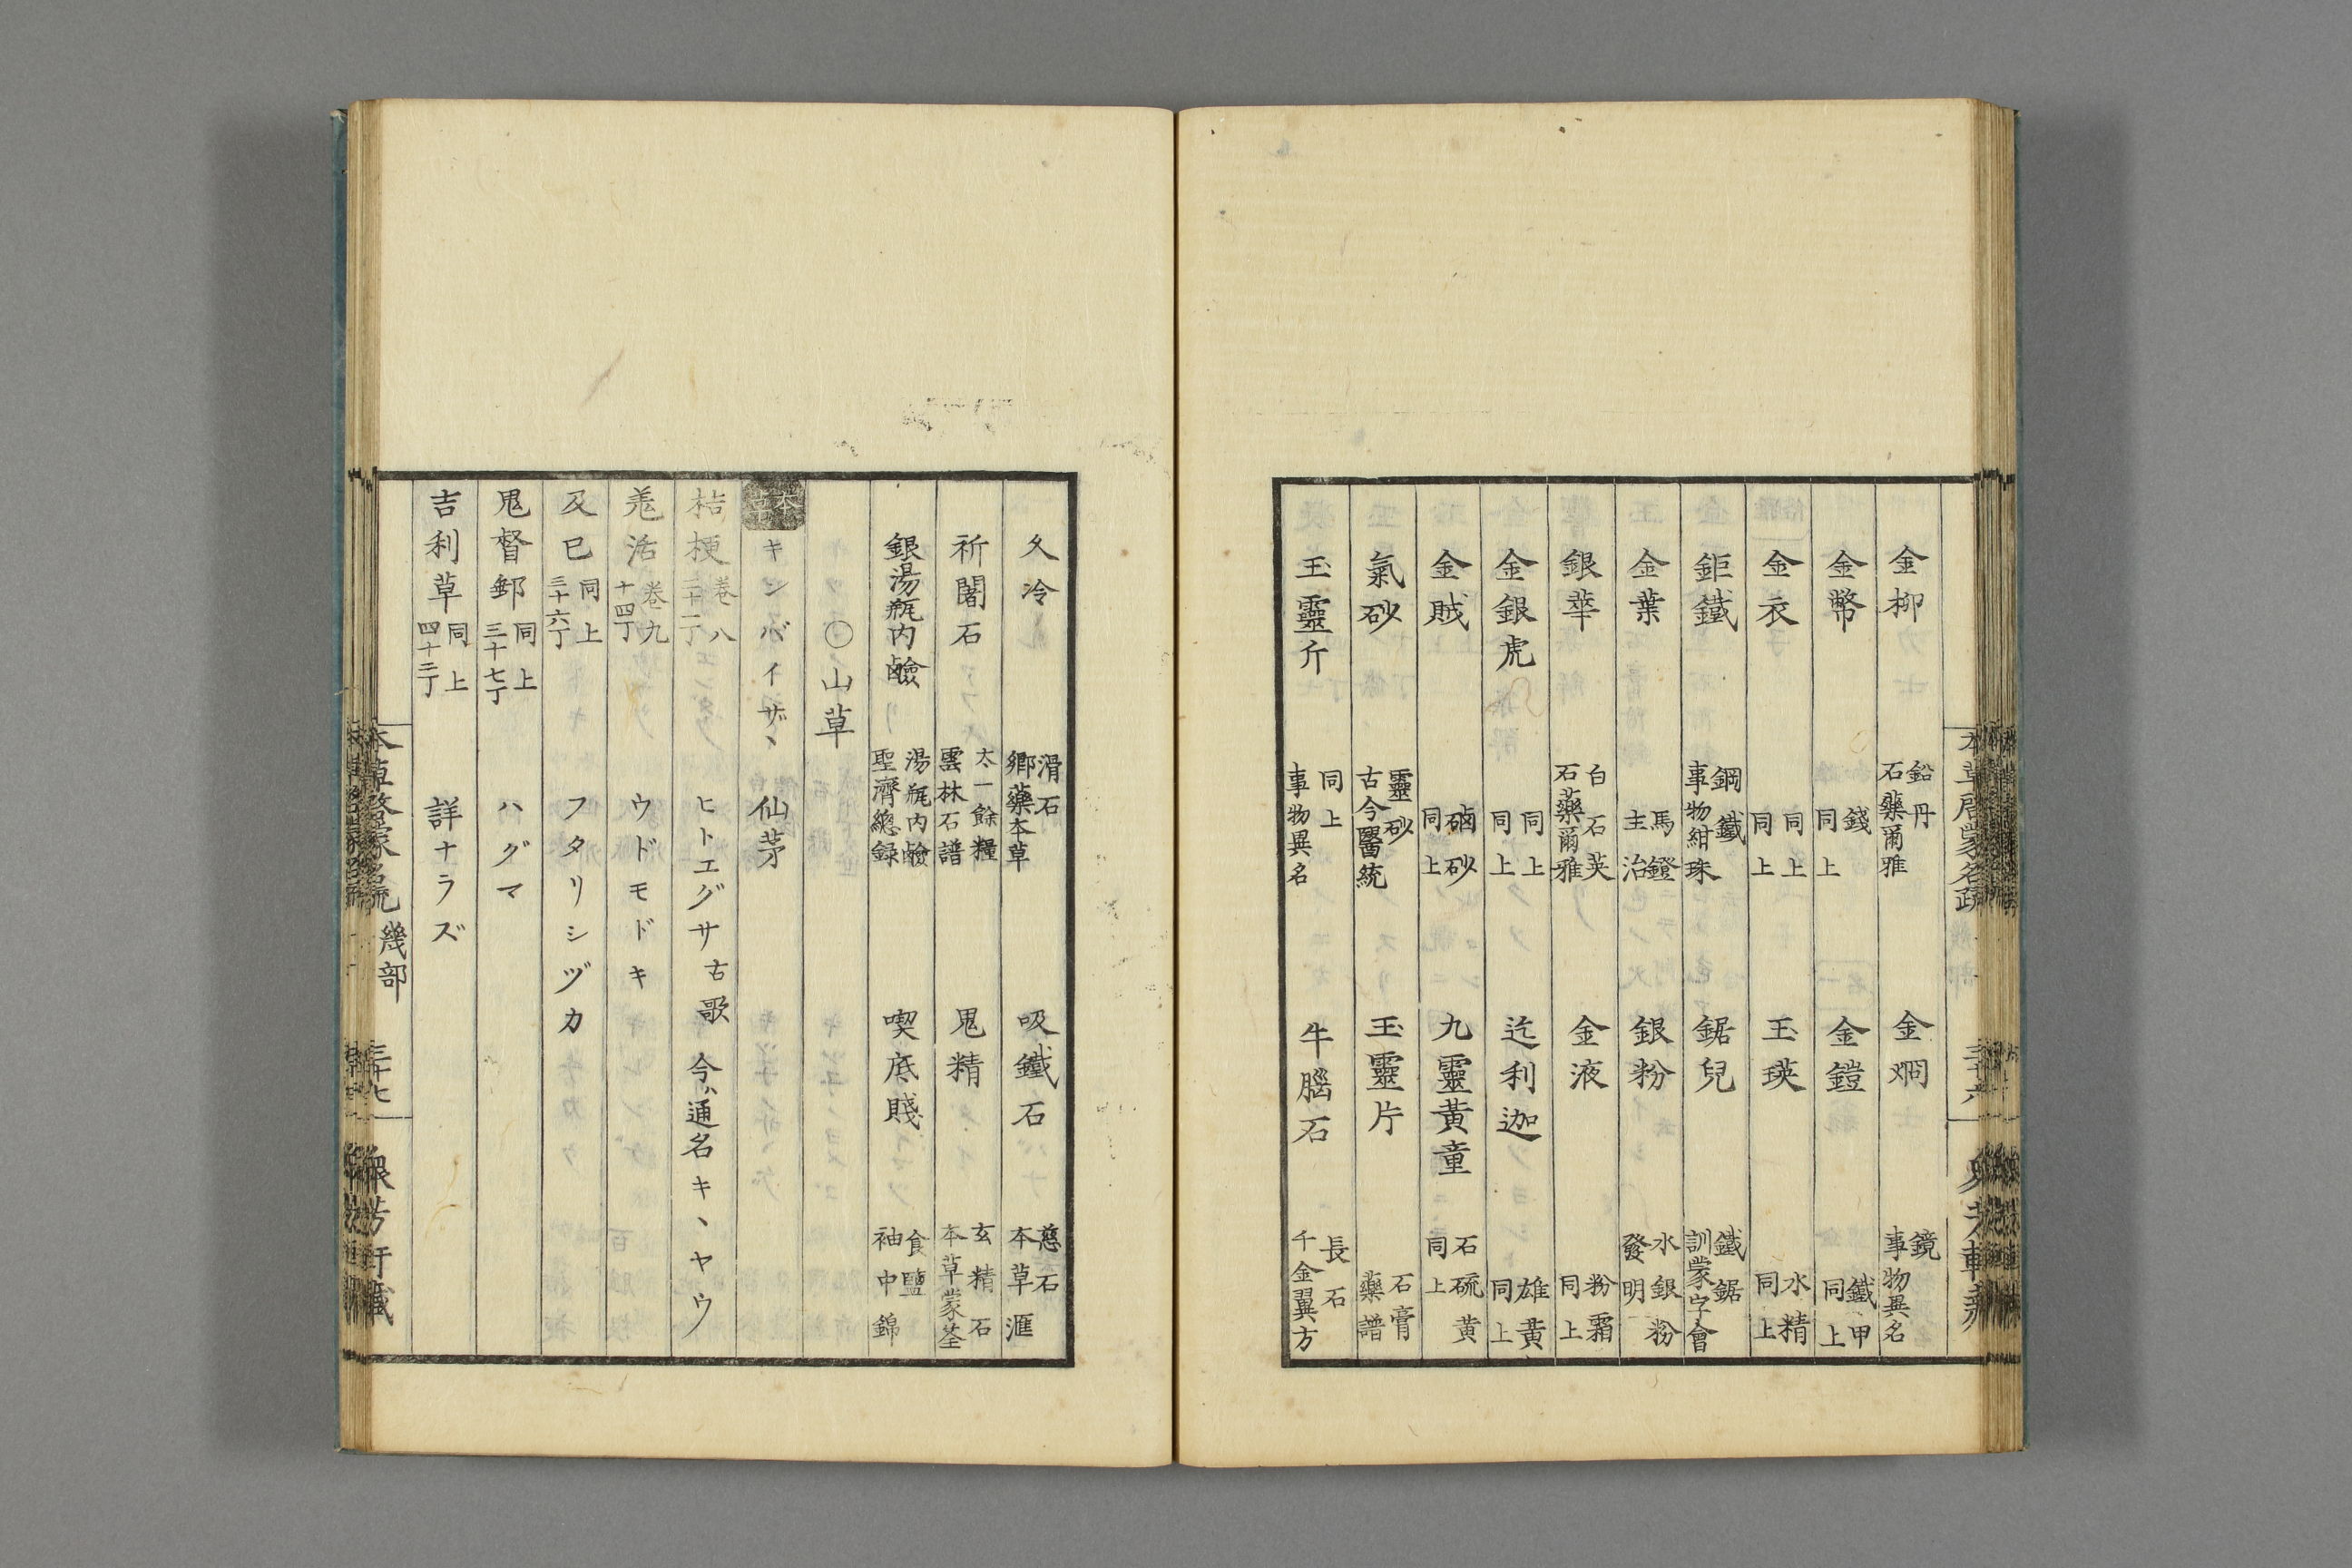 金柳 鉛丹 石藥爾雅 金烱 鏡 事物異名
金幣 錢 同上 金鎧 鐵甲 同上
金衣 同上 同上 玉瑛 水精 同上
鉅鐵 鋼鐵 事物紺珠 鋸兒 鐵鋸 訓蒙字會
金葉 馬鐙 主治 銀粉 水銀粉 發明
銀華 白石英 石藥爾雅 金液 粉霜 同上
金銀虎 同上 同上 迄利迦 雄黃 同上
金賊 硇砂 同上 九靈黃童 石硫黃 同上
氣砂 靈砂 古今醫統 玉靈片 石膏 藥譜
玉靈斤 同上 事物異名 牛腦石 長石 千金翼方
夂冷 滑石 鄉藥本草 吸鐵石 慈石 本草滙
祈闍石 太一餘糧 雲林石譜 鬼精 玄精石 本草蒙荃
銀湯瓶内鹼 湯瓶内鹼 聖濟總録 喫底賤 食鹽 袖中錦
〇山草
本草 キンバイザヽ 仙茅
桔梗 卷八 二十一丁 ヒトエグサ古歌 今ハ通名キヽヤウ
羗活 卷九 十四丁 ウドモドキ
及已 同上 三十六丁 フタリシヅカ
鬼督郵 同上 三十七丁 ハグマ
吉利草 同上 四十二丁 詳ナラズ
本草啓蒙名疏 幾部 三十七